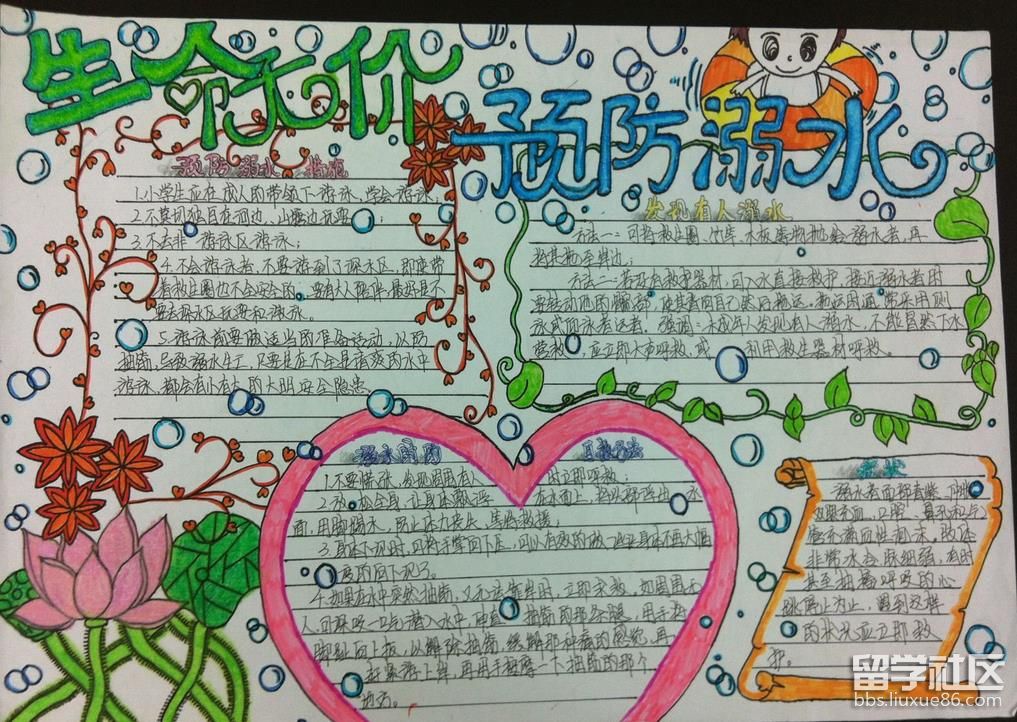 生命无价
预防溺水
预防溺水措施
1.小学生应在成人的带领下游泳,学会游泳;
2.不要独自在河边、山塘边玩耍;
3.不去非游泳区游泳;
4.不会游泳者,不要游到了深水区,即使带
有救生圈也不会安全的。要有大人陪伴
去深水区玩耍和游泳。
5.游泳前要做适当的准备活动,以防
抽筋,导致溺水
游泳,都会有
发现有人溺水
方法一:可将救生圈、竹竿、木板等物抛给溺水者,再
将其拖至岸边;
方法二:若没有救护器材,可入水直接救护,接近溺水者时
要转动他的髋部,使其背向自己然后拖运。拖运时通常采用侧
泳或仰泳拖运者。强调:未成年人发现有人溺水,不能冒然下水
营救,应立即大声呼救,或利用救生器材呼救。
溺水时的自救方法
1.不要慌张,发现周围有人时立即呼救;
2.放松全身,让身体飘浮在水面上,将头部浮出水
面,用脚踢水,防止体力丧失,等待救援;
3.身体下沉时,可将手掌向下压
4.如果在水中突然抽筋,又无法靠岸时,立即求救。如周围无
人,可深吸一口气潜入水中,伸直抽筋的那条腿,用手将
脚趾向上扳,以解除抽筋。
症状
溺水者面部青紫、
非常冰冷
甚至抽搐呼吸的心
跳停止为止,遇到这样
的状况应立即救
护。
留学社区
bbs.liuxue86.com